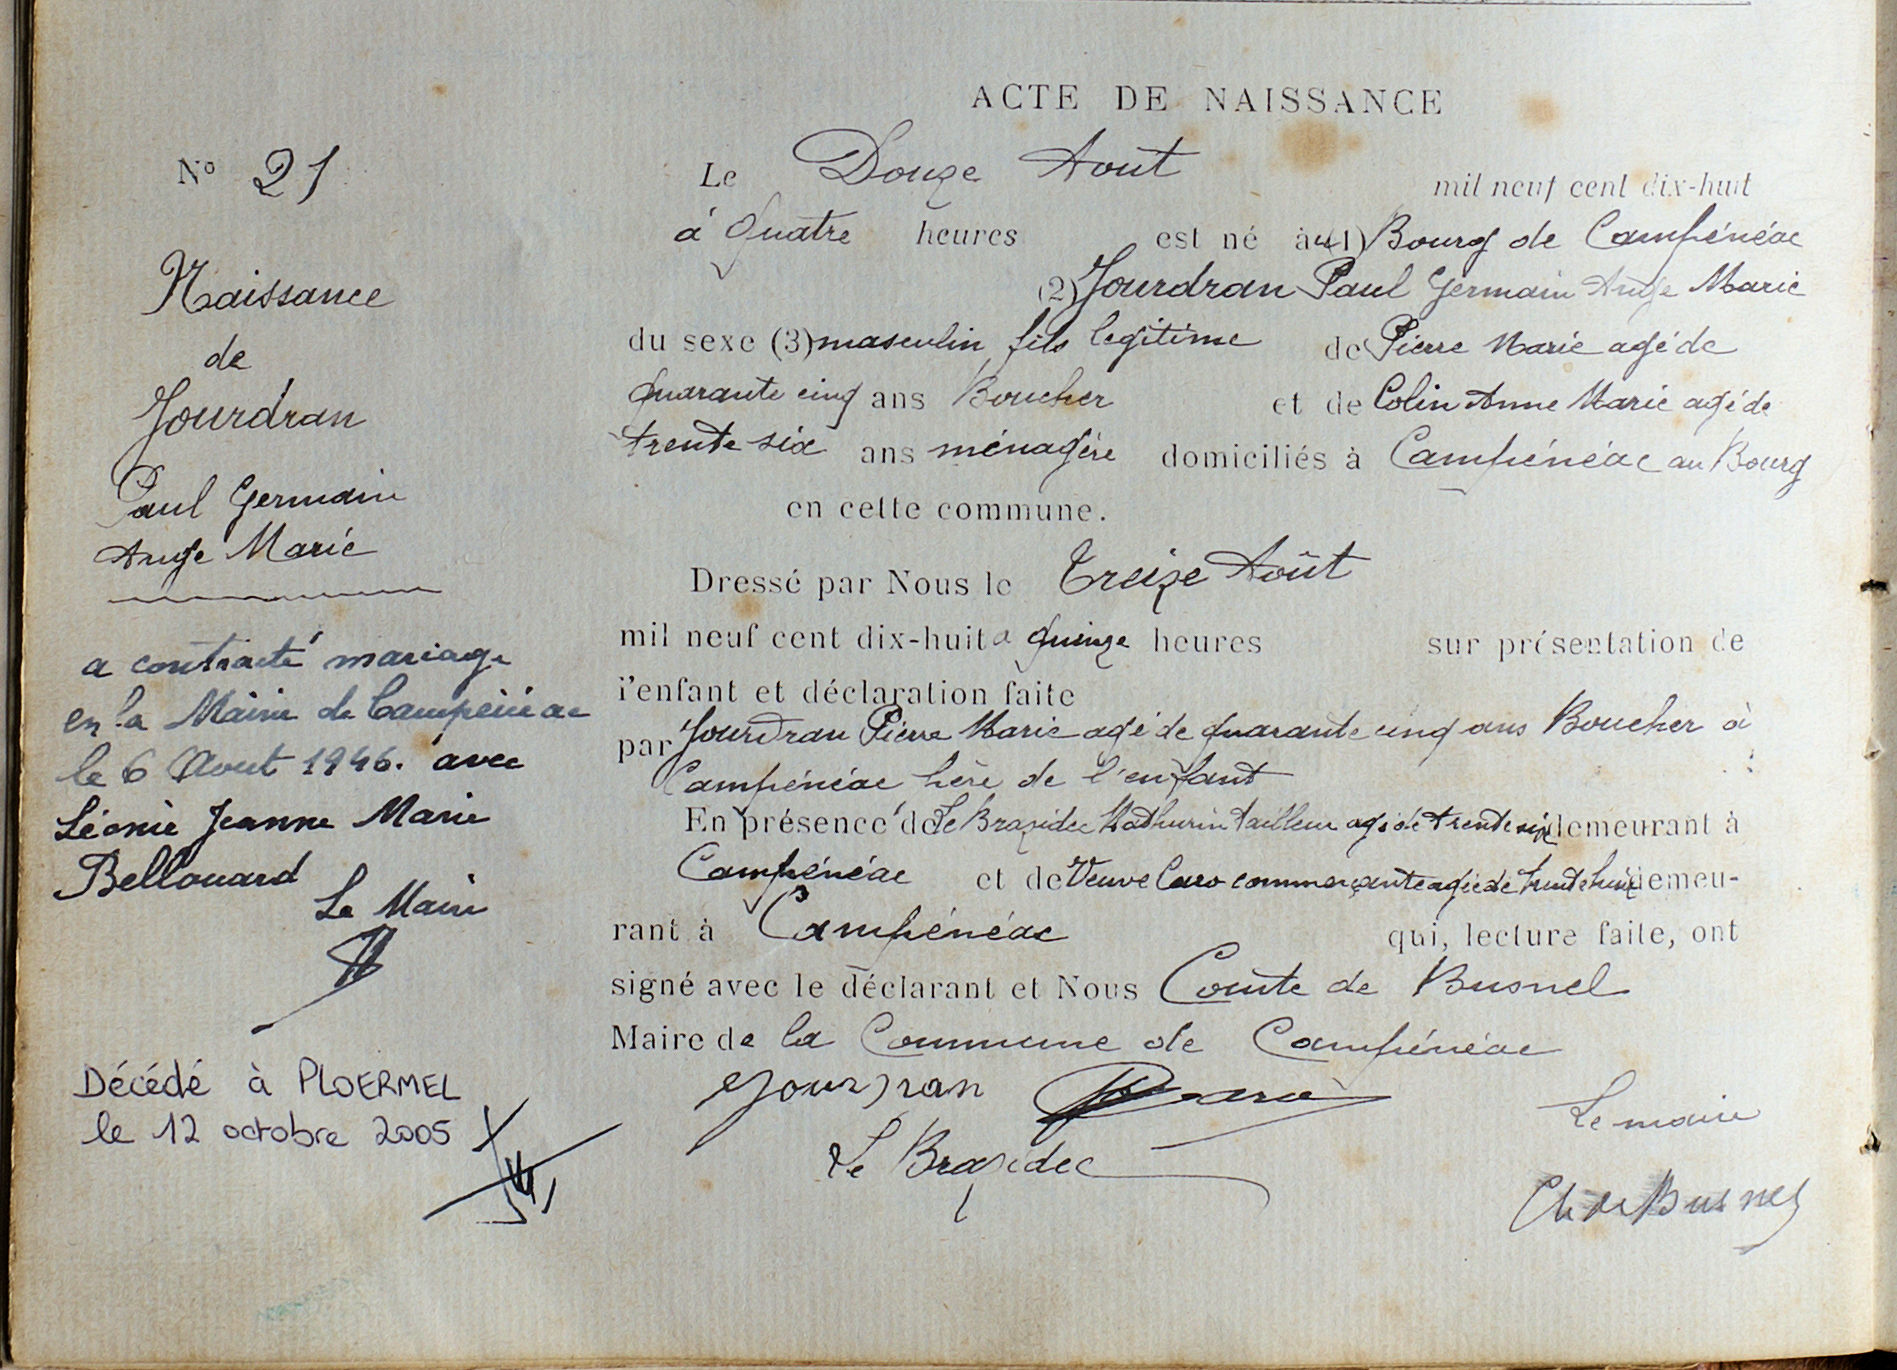 ACTE DE NAISSANCE
N° 21
Naissance
de
Jourdran
Paul Germain
Ange Marie
a contracté mariage
en la Mairie de Campénéac
le 6 Aout 1946. avec
Léonie Jeanne Marie
Bellouard
Le Maire
Décédé à PLOERMEL
le 12 octobre 2005
Le Douze Aout mil neuf cent dix-huit
à Quatre heures est né à (1) Bourg de Campénéac
(2) Jourdran Paul Germain Ange Marie
du sexe (3) masculin fils legitime de Pierre Marie agé de
quarante cinq ans Boucher et de Colin Anne Marie agé de
trente six ans ménagère domiciliés à Campénéac au Bourg
en cette commune.
Dressé par Nous le Treize Août
mil neuf cent dix-huit a quinze heures sur présentation de
l'enfant et déclaration faite
par Jourdran Pierre Marie agé de quarante cinq ans Boucher à
Campénéac père de l'enfant
En présence de Le Brazidec Mathurin tailleur agé de trente six demeurant à
Campénéac et de Veuve Caro commerçante agée de trente huit demeu-
rant à Campénéac qui, lecture faite, ont
signé avec le déclarant et Nous Comte de Busnel
Maire de la Commune de Campénéac
Jourdran
Le Brazidec
Le maire
Ch de Busnel